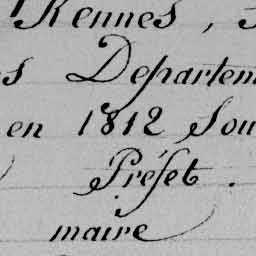 Rennes,
Départem
en 1812 Sou
Préfet.
maire